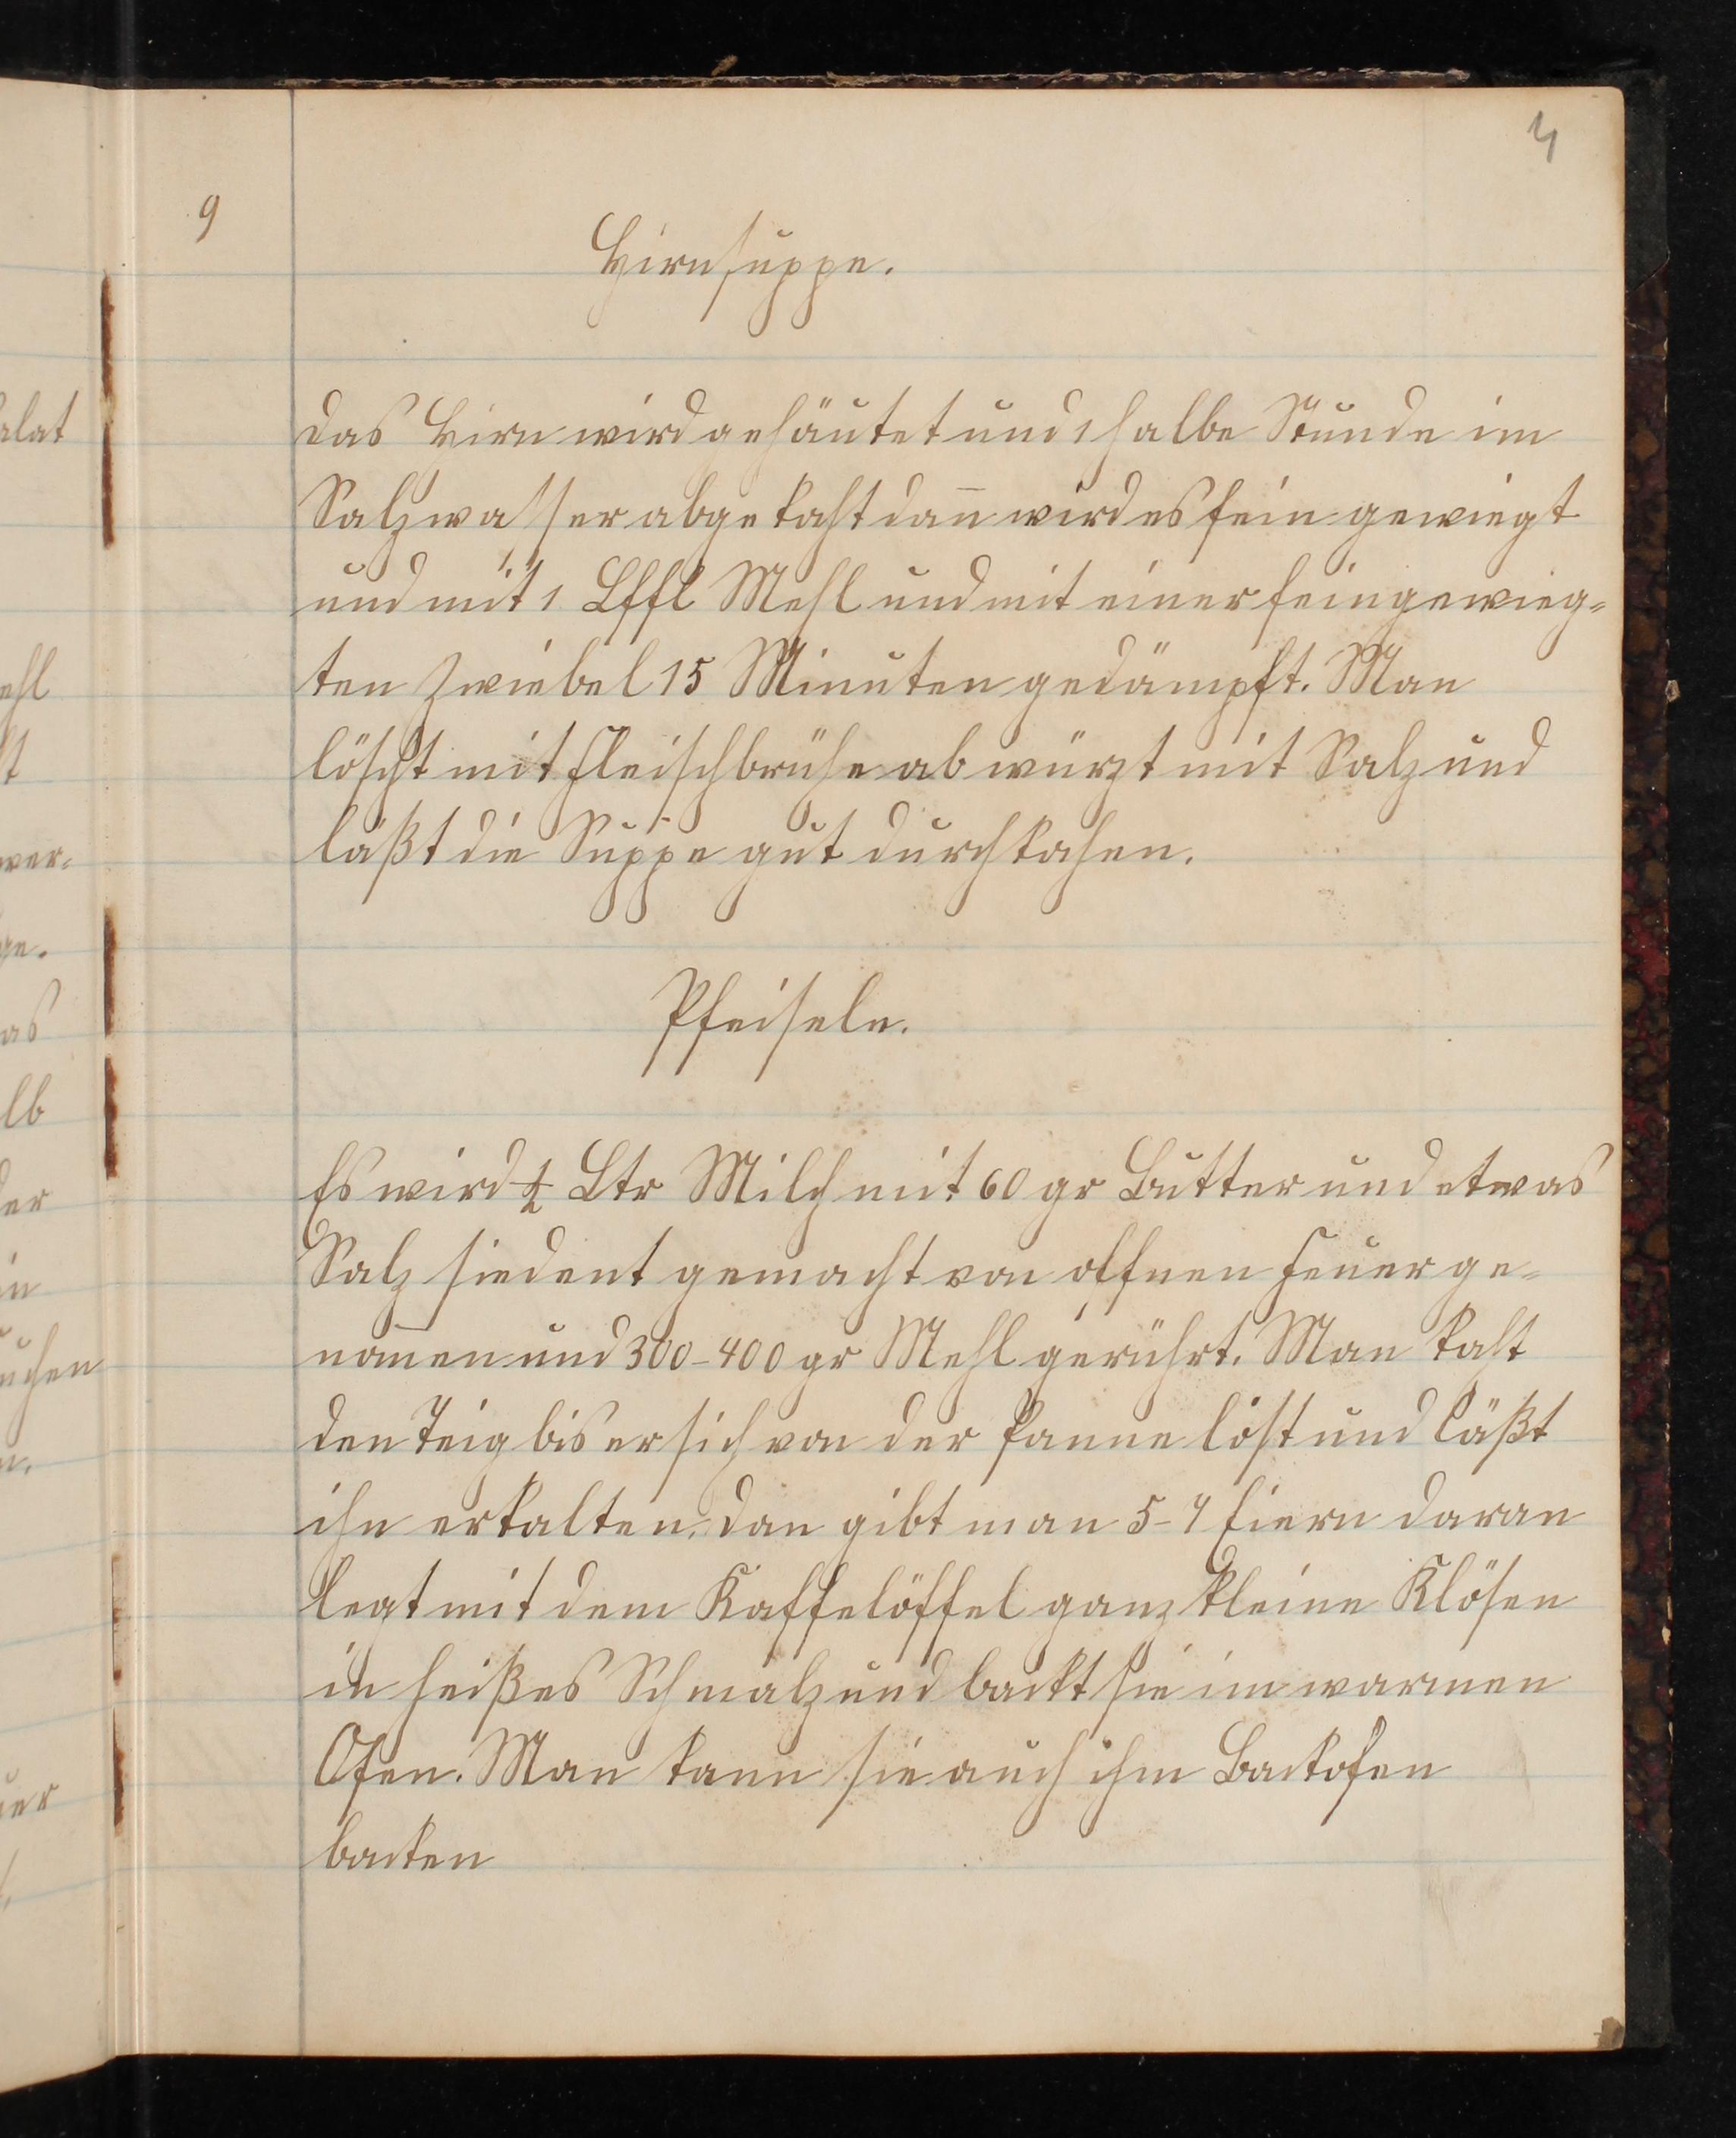 4
9
Hirnsuppe.
Das Hirn wird gehäutet und 1 halbe Stunde im
Salzwasser abgekocht dan̄ wird es fein gewiegt
und mit 1 Lffl Mehl und mit einer feingewieg=
ten Zwiebel 15 Minuten gedämpft. Man
löscht mit Fleischbrühe ab würzt mit Salz und
läßt die Suppe gut durchkochen.
Pfeiseln.
Es wird ½ Ltr Milch mit 60 gr Butter und etwas
Salz siedent gemacht von offnen Feuer ge=
nom̄en und 300-400 gr Mehl gerührt. Man kocht
den Teig bis er sich von der Panne löst und läßt
ihn erkalten. Dan gibt man 5-7 Eiern daran
legt mit dem Kaffelöffel ganz kleine Klösen
in heißes Schmalz und backt sie im warmen
Ofen. Man kann sie auch ihm Backofen
backen
alat
ehl
wer=
as
lb
er
in
uchen